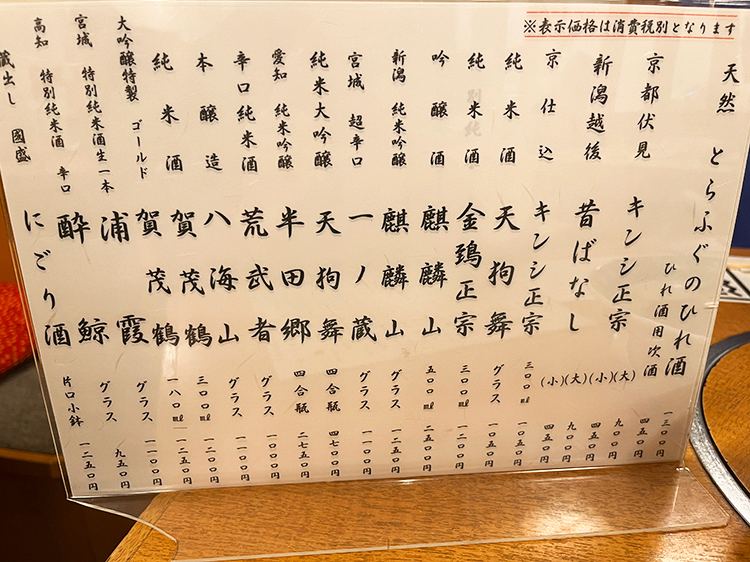 ※表示価格は消費税別となります
天然 とらふぐのひれ酒 一三〇〇円
ひれ酒用次酒 四五〇円
京都伏見 キンシ正宗 (大) 九〇〇円
(小) 四五〇円
新潟越後 昔ばなし (大) 九〇〇円
(小) 四五〇円
京仕込 キンシ正宗 三〇〇㎖ 一〇〇〇円
純米酒 天狗舞 グラス 一〇五〇円
純米酒 金鵄正宗 三〇〇㎖ 一二〇〇円
吟醸酒 麒麟山 五〇〇㎖ 二五〇〇円
新潟 純米吟醸 麒麟山 グラス 一二五〇円
宮城 超辛口 一ノ蔵 グラス 一一〇〇円
純米大吟醸 天狗舞 四合瓶 四七〇〇円
愛知 純米吟醸 半田郷 四合瓶 二七五〇円
辛口純米酒 荒武者 グラス 一〇〇〇円
本醸造 八海山 グラス 一一〇〇円
純米酒 賀茂鶴 三〇〇㎖ 一二〇〇円
大吟醸特製 ゴールド 賀茂鶴 一八〇㎖ 一二五〇円
宮城 特別純米酒生一本 浦霞 グラス 一一〇〇円
高知 特別純米酒 辛口 酔鯨 グラス 九五〇円
蔵出し 國盛 にごり酒 片口小鉢 一二五〇円